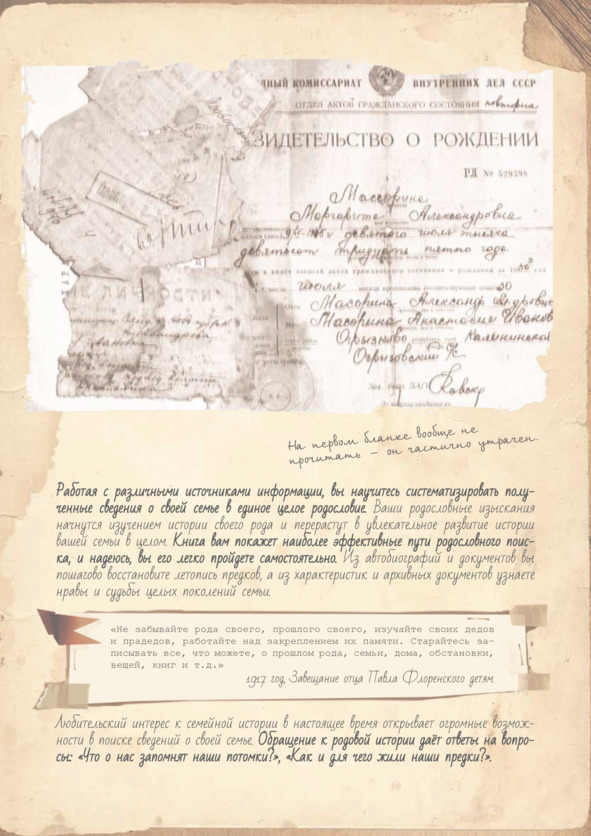 НЫЙ КОМИССАРИАТ ВНУТРЕННИХ ДЕЛ СССР
ОТДЕЛ АКТОВ ГРАЖДАНСКОГО СОСТОЯНИЯ
ВИДЕТЕЛЬСТВО О РОЖДЕНИИ
РД № 529398
Массорина
Маргарита Александровна
девятого июля тысяча
девятьсот тридцать пятого года
июля 30
Масорина Александр
Масорина Анастасия Иванов
Калининской
ЛИЧНОСТИ
На первом бланке вообще не
прочитать – он частично утрачен.
Работая с различными источниками информации, вы научитесь систематизировать полу-
ченные сведения о своей семье в единое целое родословие. Ваши родословные изыскания
начнутся изучением истории своего рода и перерастут в увлекательное развитие истории
вашей семьи в целом. Книга вам покажет наиболее эффективные пути родословного поис-
ка, и надеюсь, вы его легко пройдете самостоятельно. Из автобиографий и документов вы
пошагово восстановите летопись предков, а из характеристик и архивных документов узнаете
нравы и судьбы целых поколений семьи.
«Не забывайте рода своего, прошлого своего, изучайте своих дедов
и прадедов, работайте над закреплением их памяти. Старайтесь за-
писывать все, что можете, о прошлом рода, семьи, дома, обстановки,
вещей, книг и т.д.»
1917 год, Завещание отца Павла Флоренского детям
Любительский интерес к семейной истории в настоящее время открывает огромные возмож-
ности в поиске сведений о своей семье. Обращение к родовой истории даёт ответы на вопро-
сы: «Что о нас запомнят наши потомки?», «Как и для чего жили наши предки?».